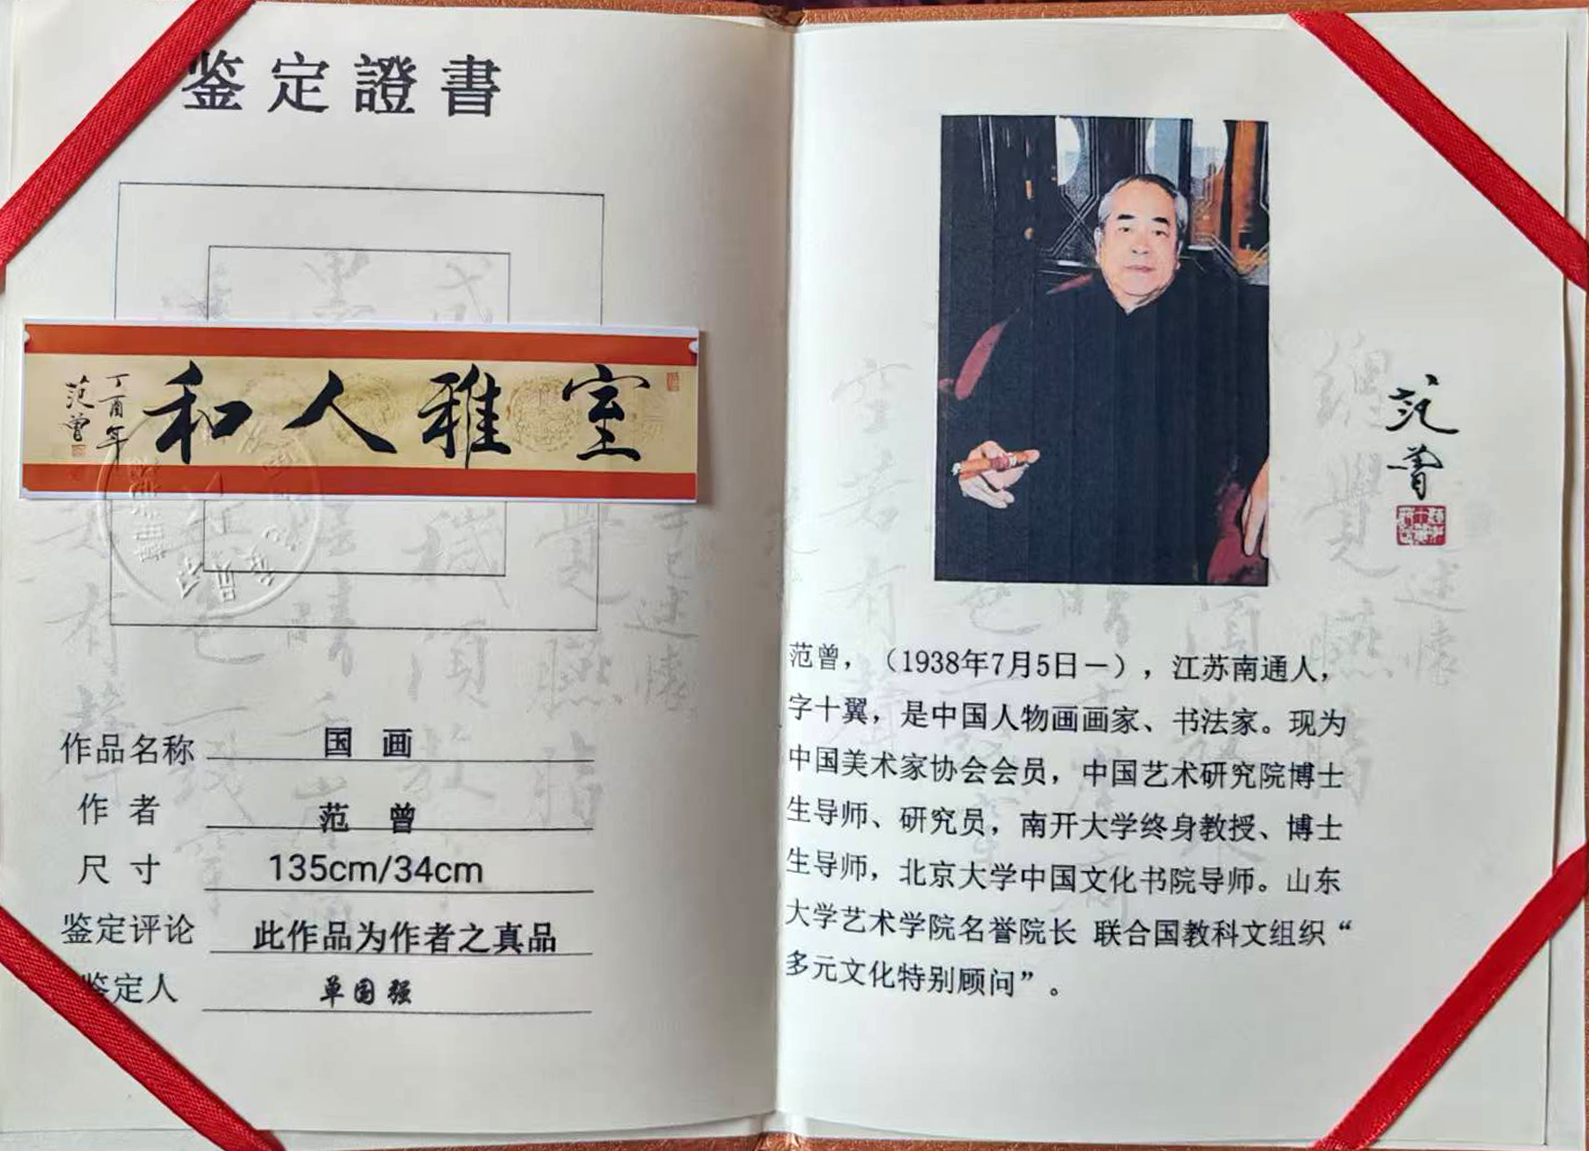 鉴定證書
室雅人和
丁酉年
范曾
作品名称 国画
作者 范曾
尺寸 135cm/34cm
鉴定评论 此作品为作者之真品
鉴定人 单国强
范曾
范曾，（1938年7月5日－），江苏南通人，
字十翼，是中国人物画画家、书法家。现为
中国美术家协会会员，中国艺术研究院博士
生导师、研究员，南开大学终身教授、博士
生导师，北京大学中国文化书院导师。山东
大学艺术学院名誉院长 联合国教科文组织“
多元文化特别顾问”。